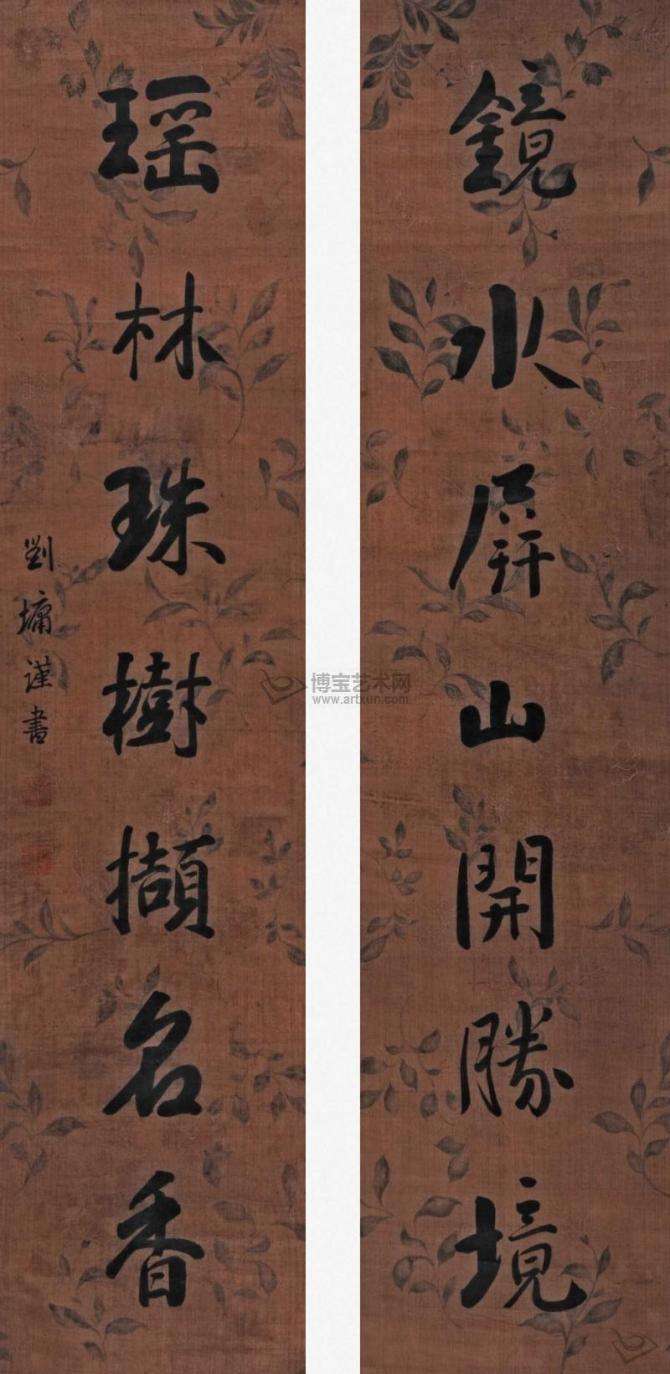 鏡水屏山開勝境
瑶林珠樹擷名香
劉墉謹書
博宝艺术网
www.artxun.com